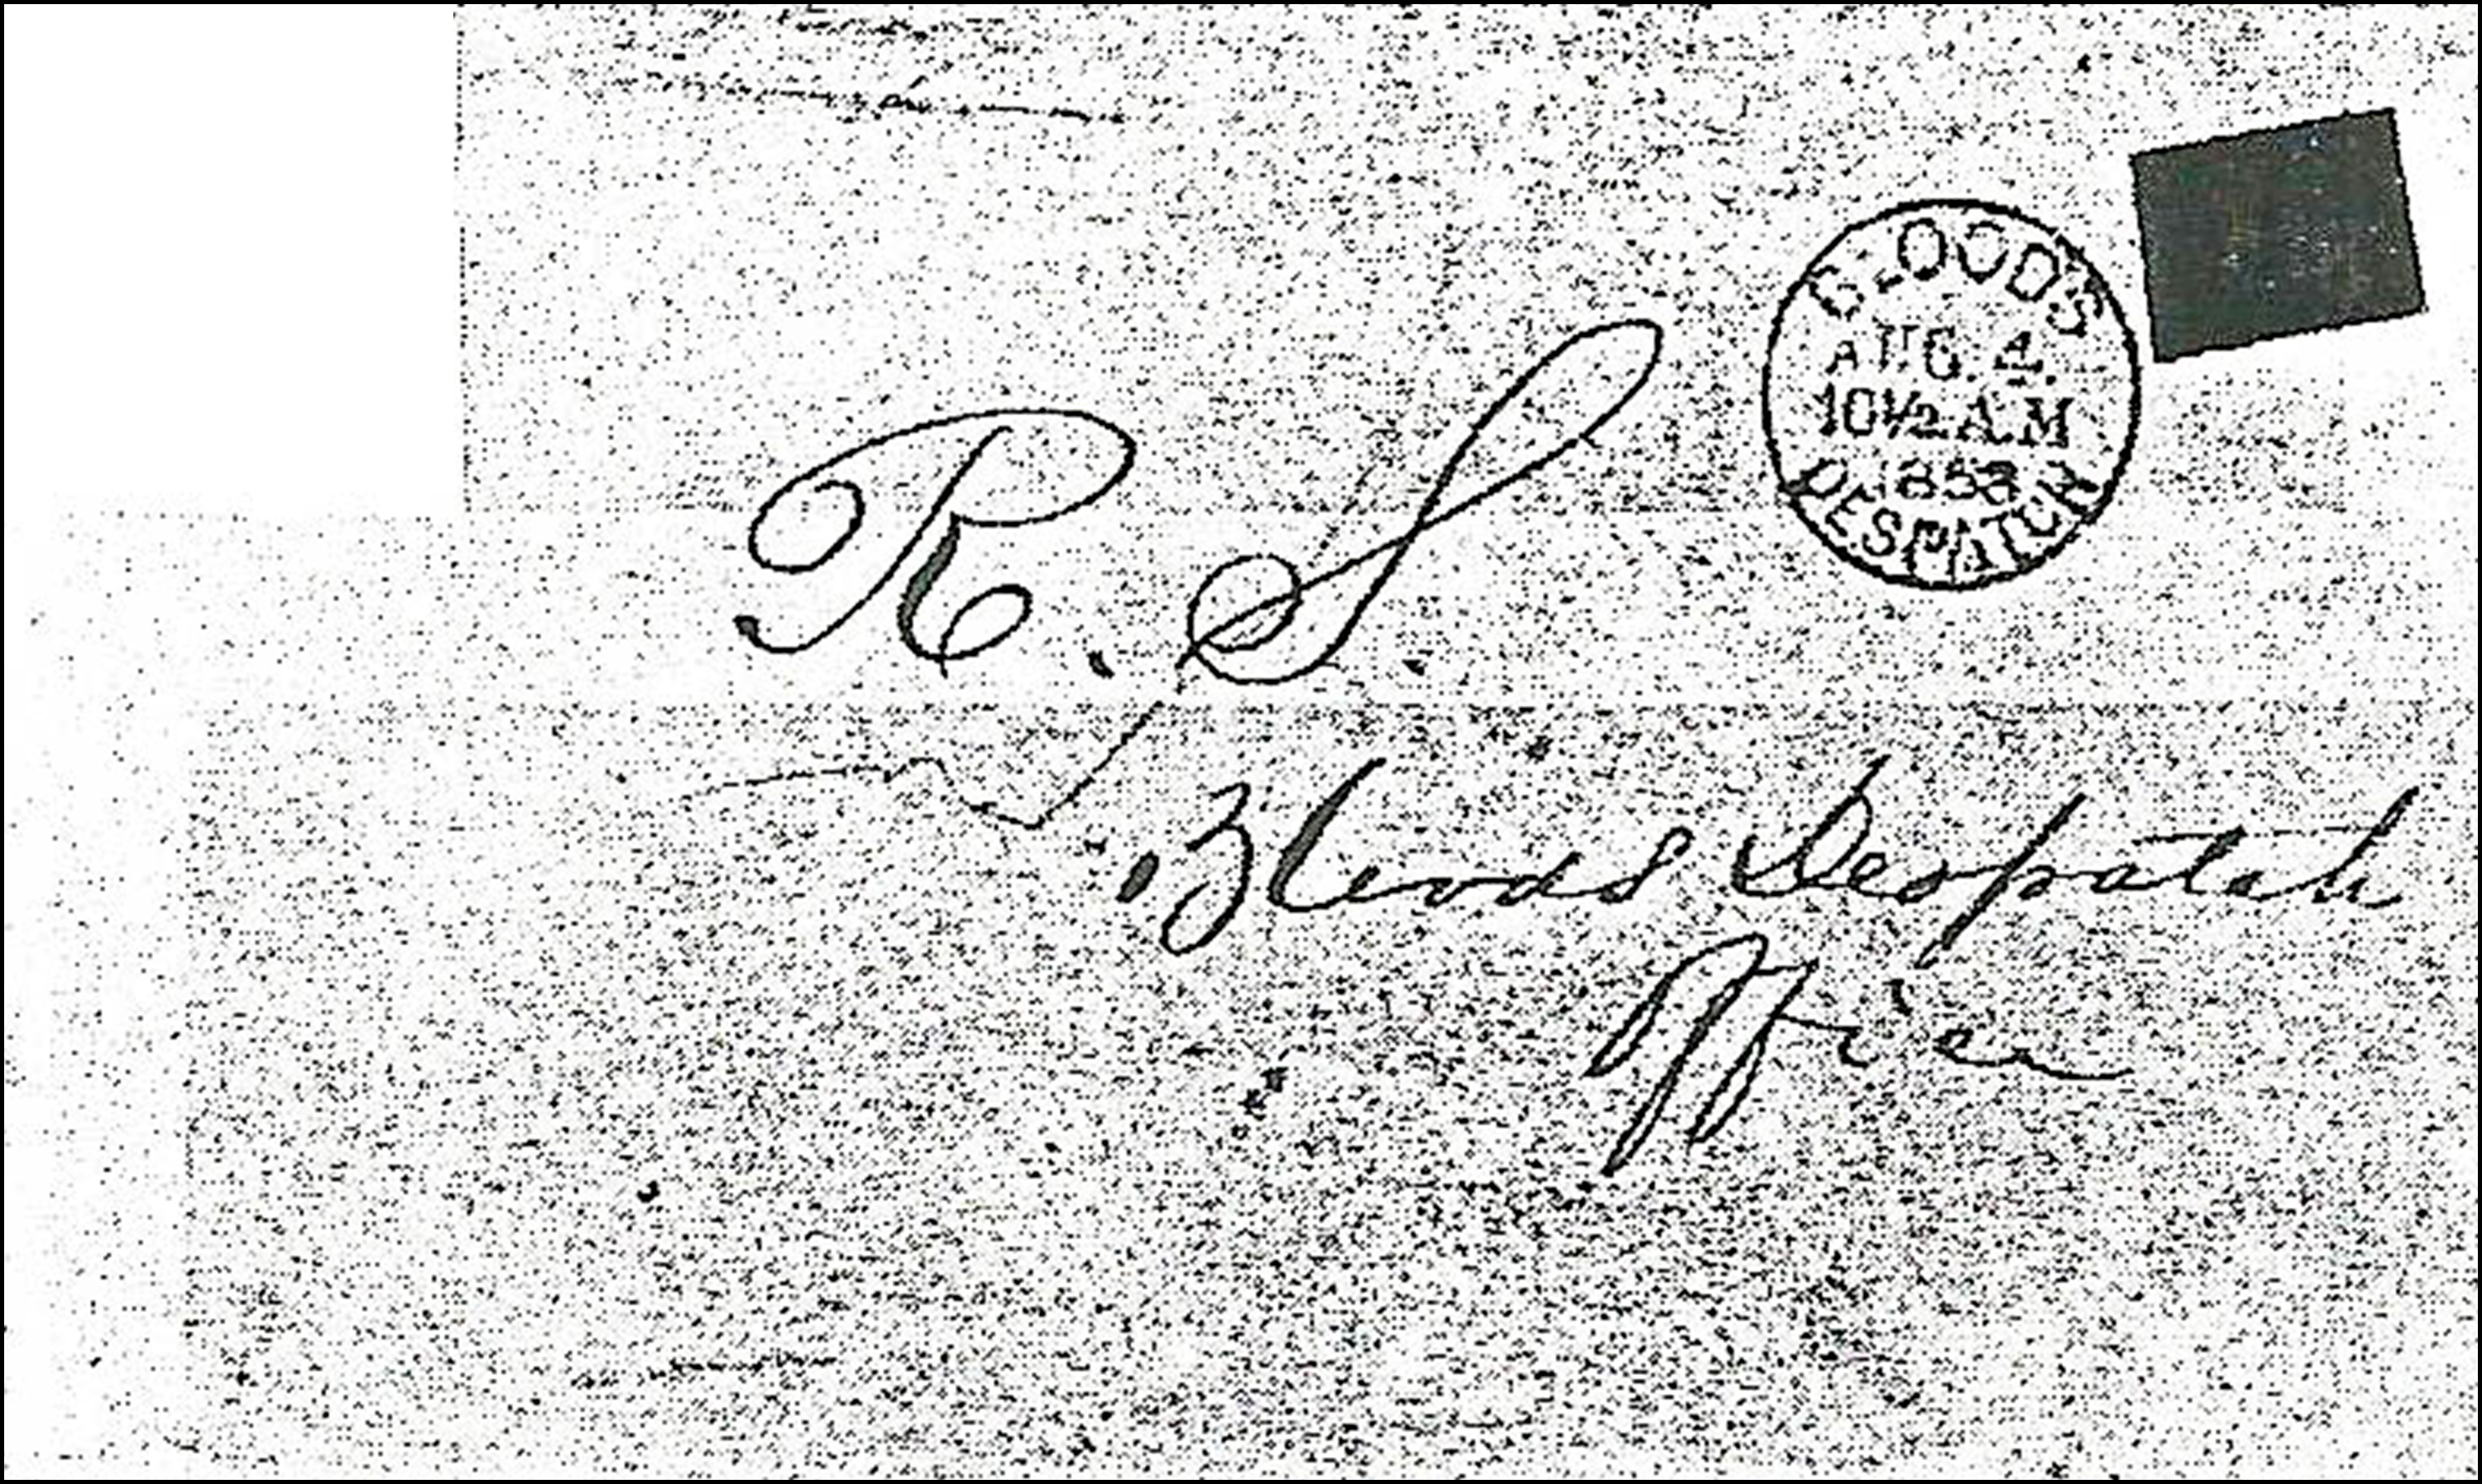 BLOOD'S
AUG. 4.
10½ A.M
1858
DESPATCH
R. S.
Bloods Despatch
Office